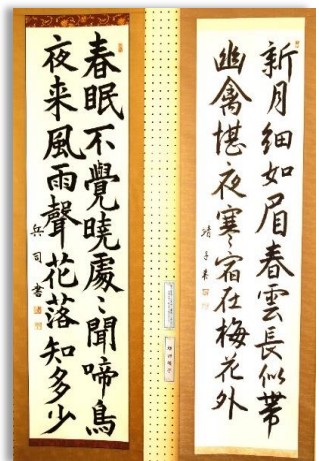 新月細如眉春雲長似帶
幽禽堪夜寒〻宿在梅花外
春眠不覺曉處〻聞啼鳥
夜来風雨聲花落知多少
兵司書